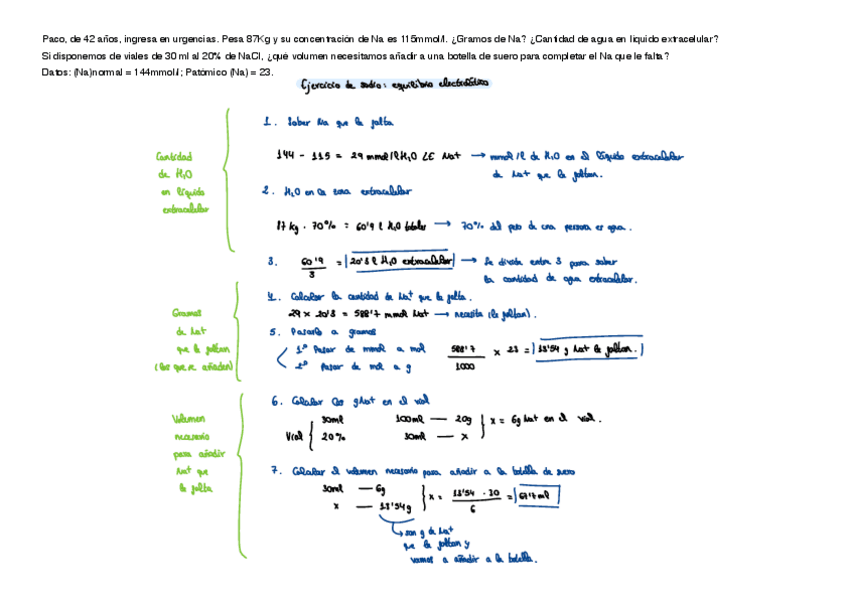 Paco, de 42 años, ingresa en urgencias. Pesa 87Kg y su concentración de Na es 115mmol/l. ¿Gramos de Na? ¿Cantidad de agua en líquido extracelular?
Si disponemos de viales de 30 ml al 20% de NaCl, ¿qué volumen necesitamos añadir a una botella de suero para completar el Na que le falta?
Datos: (Na)normal = 144mmol/l; Patómico (Na) = 23.
Ejercicio de sodio: equilibrio electrolítico
Cantidad
de H₂O
en líquido
extracelular
1. Saber Na que le falta
144 - 115 = 29 mmol/l H₂O LE Na+ → mmol/l de H₂O en el líquido extracelular
de Na+ que le faltan.
2. H₂O en la zona extracelular
87 kg · 70% = 60'9 l H₂O totales → 70% del peso de una persona es agua.
3. 60'9/3 = 20'3 l H₂O extracelular → Se divide entre 3 para saber
la cantidad de agua extracelular.
Gramos
de Na+
que le faltan
(los que se añaden)
4. Calcular la cantidad de Na+ que le falta.
29 x 20'3 = 588'7 mmol Na+ → necesita (le faltan).
5. Pasarlo a gramos
1.º Pasar de mmol a mol
2.º Pasar de mol a g
588'7/1000 x 23 = 13'54 g Na+ le faltan.
Volumen
necesario
para añadir
Na+ que
le falta
6. Calcular los g Na+ en el vial
Vial { 30ml
20%
100ml — 20g
30ml — x
x = 6g Na+ en el vial.
7. Calcular el volumen necesario para añadir a la botella de suero
30ml — 6g
x — 13'54g
x = 13'54 · 30 / 6 = 67'7 ml
→ son g de Na+
que le faltan y
vamos a añadir a la botella.